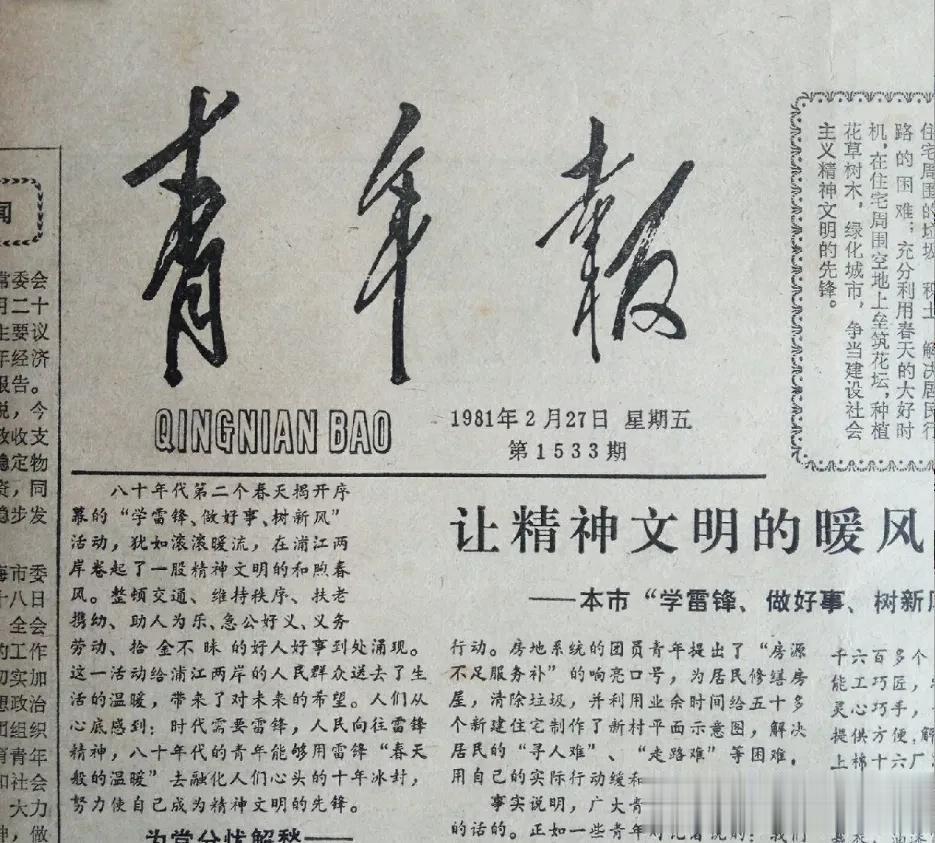 青年报
QINGNIAN BAO
1981年2月27日 星期五
第1533期
路的困难；充分利用春天的大好时
机，在住宅周围空地上垒筑花坛，种植
花草树木，绿化城市，争当建设社会
主义精神文明的先锋。
闻
常委会
月二十
主要议
年经济
报告。
说，今
收支
稳定物
资，同
稳步发
海市委
十八日
全会
的工作
切实加
想政治
团组织
育青年
和社会
大力
神，做
八十年代第二个春天揭开序
幕的“学雷锋、做好事、树新风”
活动，犹如滚滚暖流，在浦江两
岸卷起了一股精神文明的和煦春
风。整顿交通、维持秩序、扶老
携幼、助人为乐、急公好义、义务
劳动、拾金不昧的好人好事到处涌现。
这一活动给浦江两岸的人民群众送去了生
活的温暖，带来了对未来的希望。人们从
心底感到：时代需要雷锋，人民向往雷锋
精神，八十年代的青年能够用雷锋“春天
般的温暖”去融化人们心头的十年冰封，
努力使自己成为精神文明的先锋。
为党分忧解愁——
让精神文明的暖风
——本市“学雷锋、做好事、树新风
行动。房地系统的团员青年提出了“房源
不足服务补”的响亮口号，为居民修缮房
屋，清除垃圾，并利用业余时间给五十多
个新建住宅制作了新村平面示意图，解决
居民的“寻人难”、“走路难”等困难，
用自己的实际行动缓和
事实说明，广大青
的话的。正如一些青年对记者说的：我们
千六百多个
能工巧匠，
灵心巧手，
提供方便，解
上棉十六厂